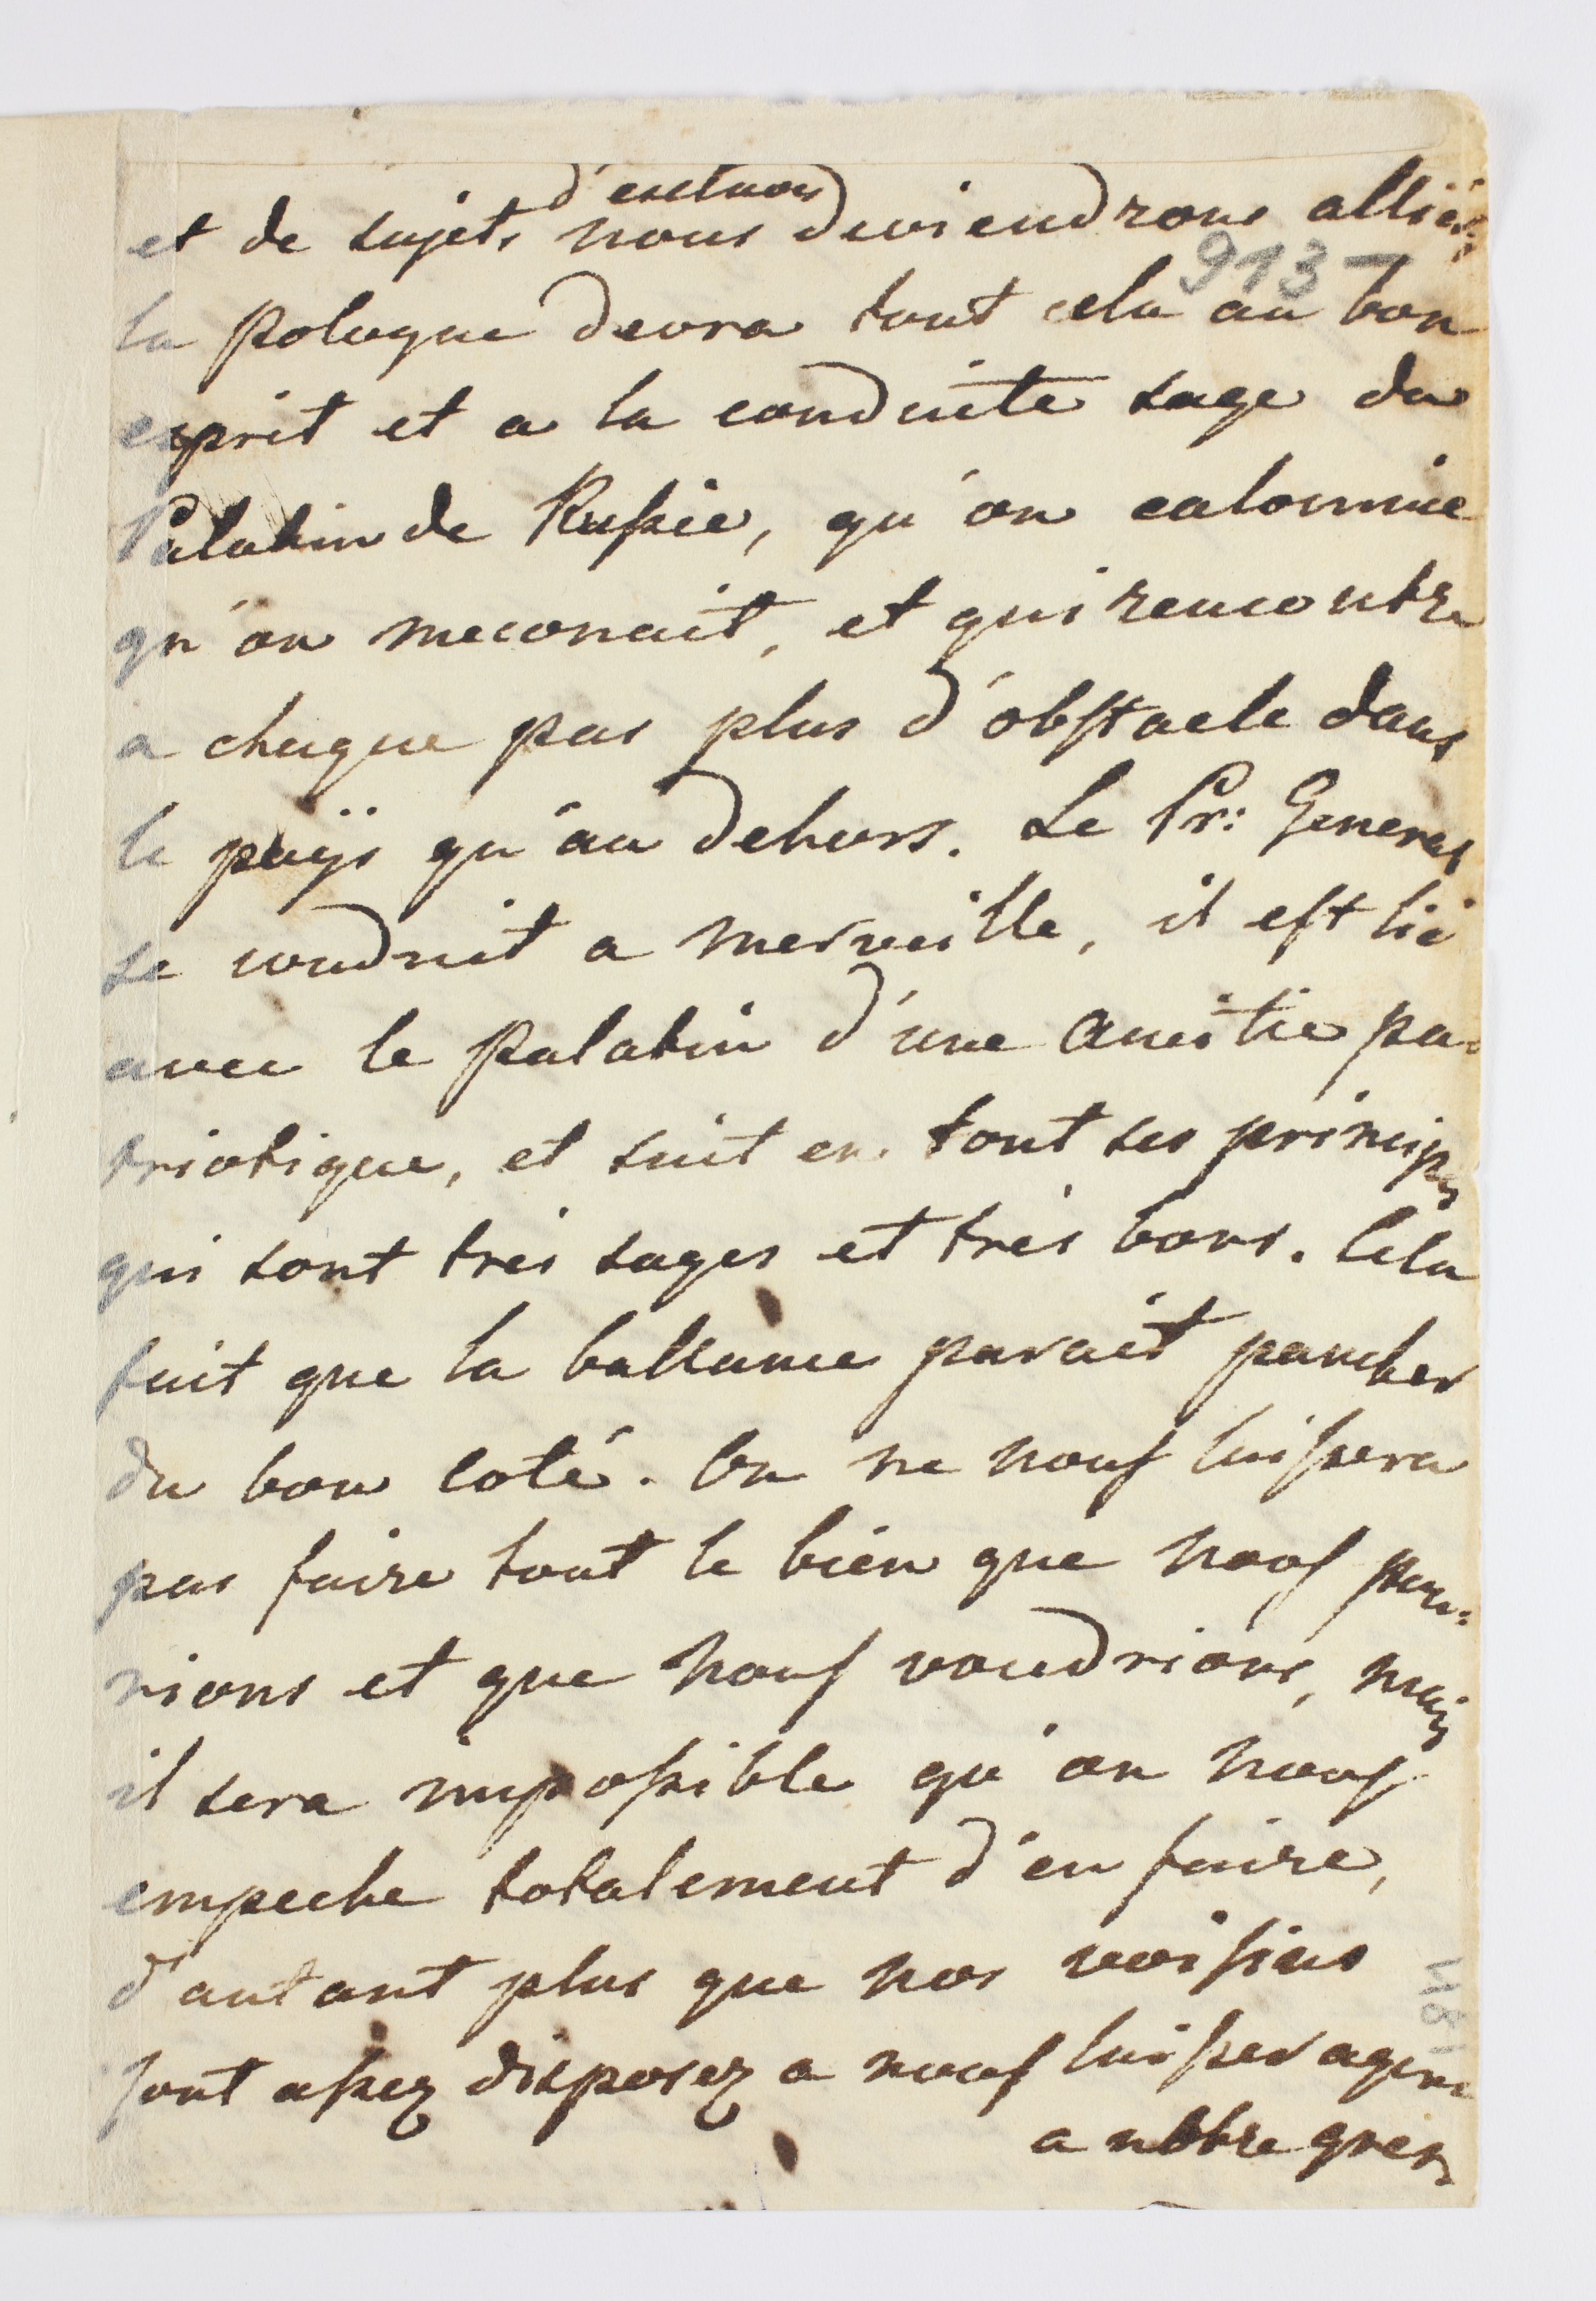 d'esclaves
et de sujets nous deviendrons alliés,
913 -
la pologne devra tout cela au bon
esprit et a la conduite sage du
Palatin de Russie, qu'on calomnie
qu'on meconait, et qui rencontre
a chaque pas plus d'obstacle dans
le païjs qu'au dehors. Le Pr: General
se conduit a merveille, il est lié
avec le palatin d'une amitie pa-
triotique, et suit en tout ses principes
qui sont tres sages et tres bons. Cela
fait que la ballance parait pancher
du bon coté. On ne nous laissera
pas faire tout le bien que nous pou-
rions et que nous voudrions, mais
il sera impossible qu'on nous
empeche totalement d'en faire,
d'autant plus que nos voisins
sont assez disposez a nous laisser agir
a nottre grez